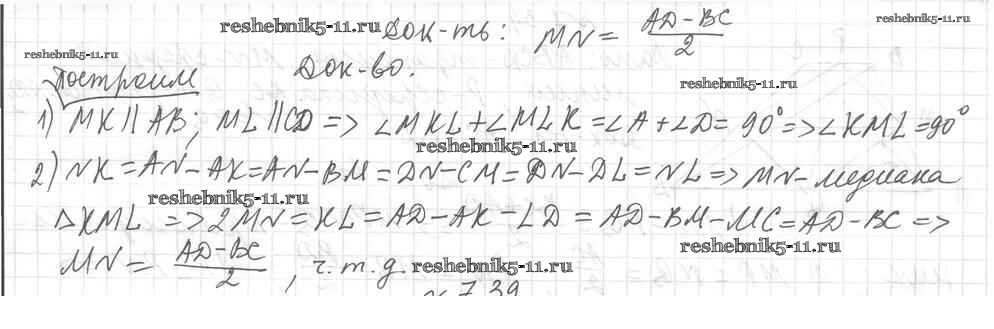 reshebnik5-11.ru Док-ть: MN = (AD-BC)/2 reshebnik5-11.ru
reshebnik5-11.ru Док-во.
Построим reshebnik5-11.ru
1) MK || AB; ML || CD => ∠MKL + ∠MLK = ∠A + ∠D = 90° => ∠KML = 90°
reshebnik5-11.ru
2) NK = AN - AK = AN - BM = DN - CM = DN - DL = NL => MN - медиана
reshebnik5-11.ru
△KML => 2MN = KL = AD - AK - LD = AD - BM - MC = AD - BC =>
reshebnik5-11.ru
MN = (AD-BC)/2, ч.т.д. reshebnik5-11.ru
7.39